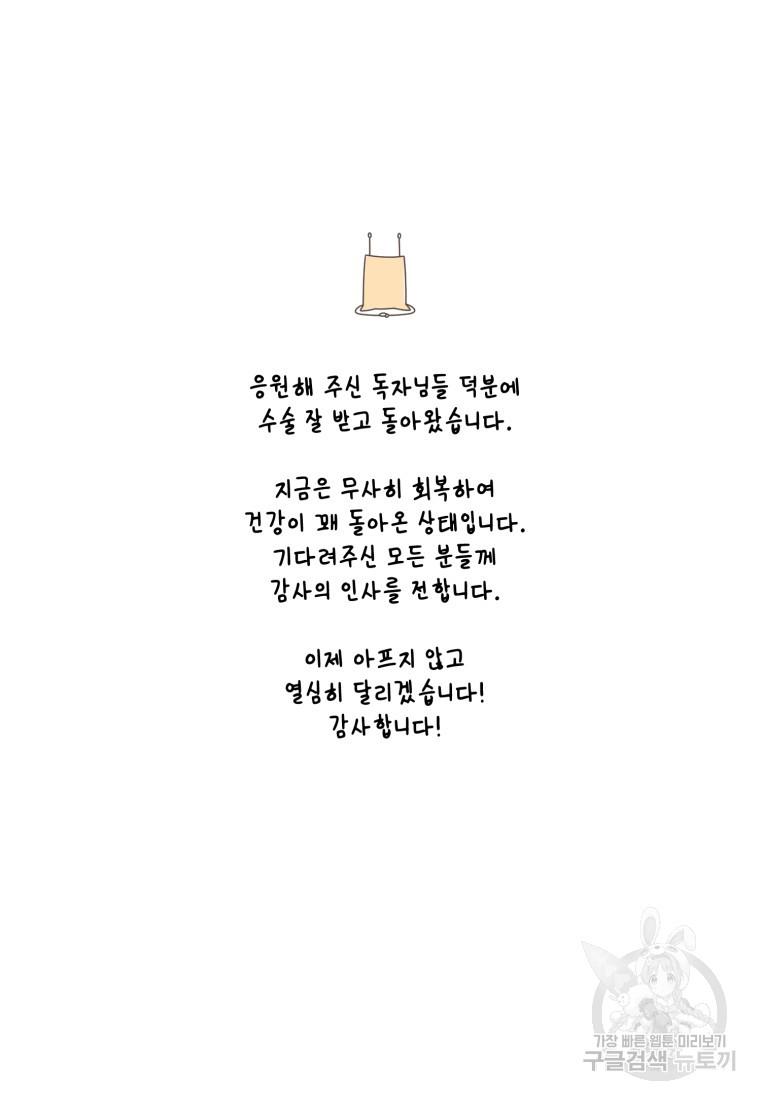 응원해 주신 독자님들 덕분에
수술 잘 받고 돌아왔습니다.
지금은 무사히 회복하여
건강이 꽤 돌아온 상태입니다.
기다려주신 모든 분들께
감사의 인사를 전합니다.
이제 아프지 않고
열심히 달리겠습니다!
감사합니다!
가장 빠른 웹툰 미리보기
구글검색 뉴토끼